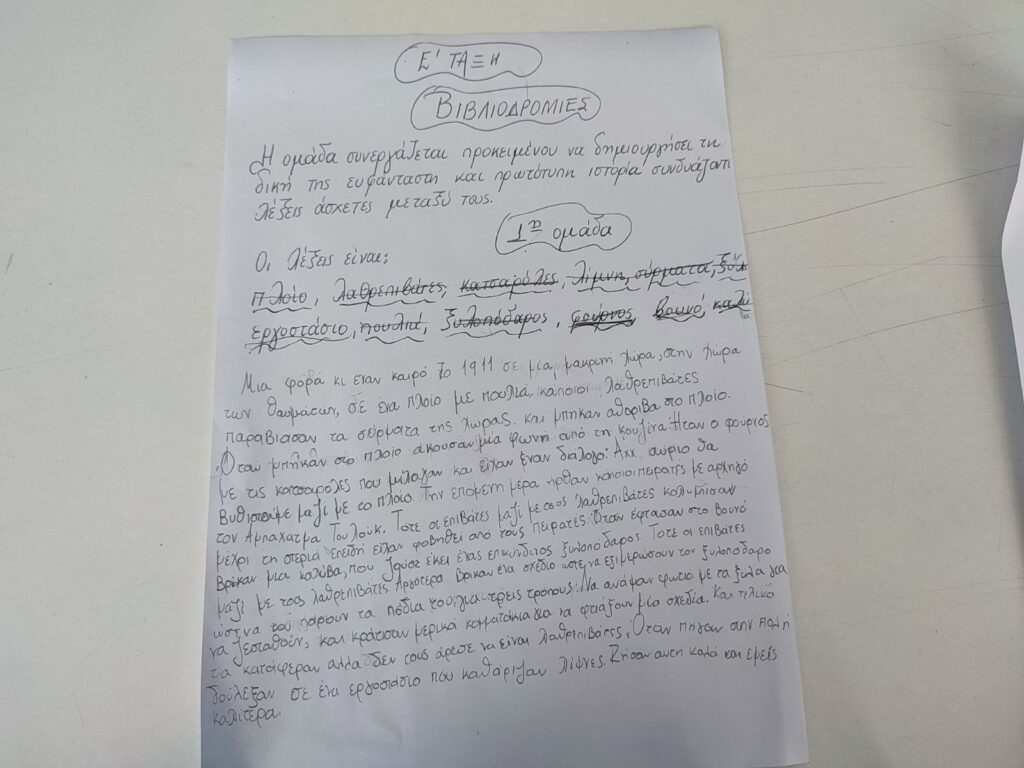 Ε' ΤΑΞΗ
ΒΙΒΛΙΟΔΡΟΜΙΕΣ
Η ομάδα συνεργάζεται προκειμένου να δημιουργήσει τη
δική της ευφάνταστη και πρωτότυπη ιστορία συνδυάζοντ
λέξεις άσχετες μεταξύ τους.
1η ομάδα
Οι λέξεις είναι:
πλοίο, λαθρεπιβάτες, κατσαρόλες, λίμνη, σύρματα, ξύλ
εργοστάσιο, πουλιά, ξυλοπόδαρος, φούρνος, βουνό, καλύ
Μια φορά κι έναν καιρό το 1911 σε μία μακρινή χώρα, στην χώρα
των θαυμάτων, σε ένα πλοίο με πουλιά, κάποιοι λαθρεπιβάτες
παραβίασαν τα σύρματα της χώρας και μπήκαν αθόριβα στο πλοίο.
Όταν μπήκαν στο πλοίο άκουσαν μία φωνή από τη κουζίνα. Ήταν ο φούρνος
με τις κατσαρόλες που μιλάγαν και είχαν έναν διάλογο: Αχχ, αύριο θα
βυθιστούμε μαζί με το πλοίο. Την επόμενη μέρα ήρθαν κάποιοι πειρατές με αρχηγό
τον Αμπαχατμα Του Λουκ. Τότε οι επιβάτες μαζί με τους λαθρεπιβάτες κολύμπισαν
μέχρι τη στεριά επειδή είχαν φοβηθεί από τους πειρατές. Όταν έφτασαν στο βουνό
βρίκαν μια καλύβα, που ζούσε εκεί ένας επικίνδυνος ξυλοπόδαρος. Τότε οι επιβάτες
μαζί με τους λαθρεπιβάτες. Αργότερα βρίκαν ένα σχέδιο ώστε να εξιμερώσουν τον ξυλοπόδαρο
ώστε να του πάρουν τα πόδια του, για τρεις τρόπους: Να ανάψαν φωτιά με τα ξύλα για
να ζεσταθούν, και κράτισαν μερικά κομματάκια για να φτιάξουν μία σχεδία. Και τελικά
τα κατάφεραν αλλά δεν τους άρεσε να είναι λαθρεπιβάτες, Όταν πήγαν στην πόλη
δούλεξαν σε ένα εργοστάσιο που καθάριζαν λίμνες. Ζήσαν αυτή καλά και εμείς
καλίτερα.